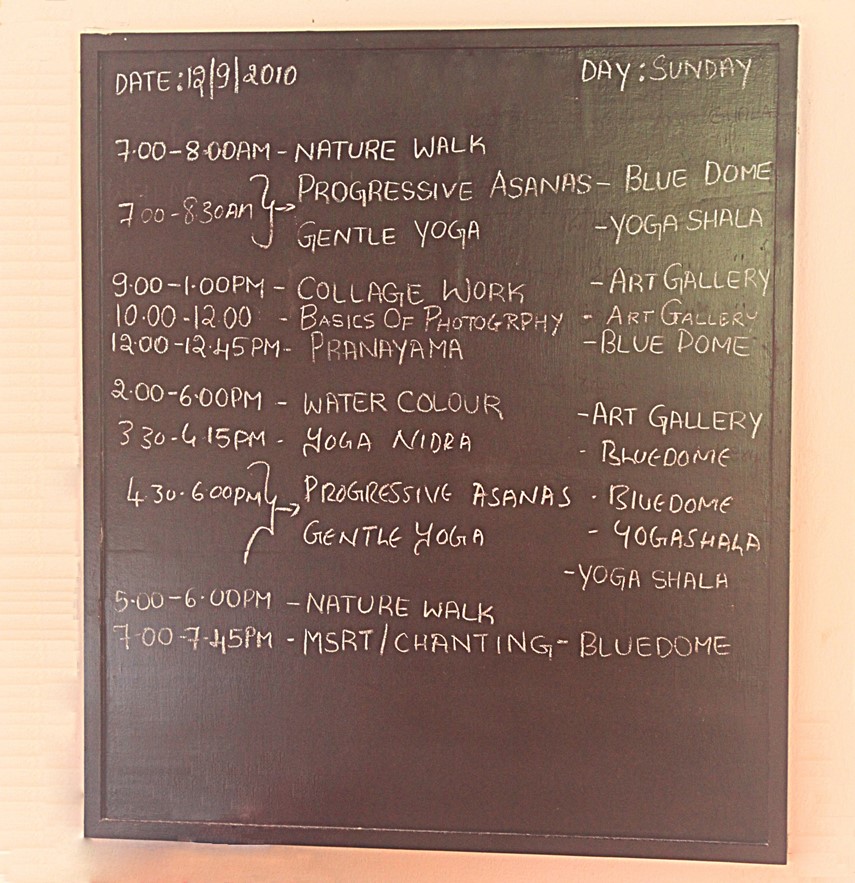 DATE:12/9/2010 DAY:SUNDAY
7.00-8.00AM - NATURE WALK
PROGRESSIVE ASANAS - BLUE DOME
7.00-8.30AM
GENTLE YOGA - YOGA SHALA
9.00-1.00PM - COLLAGE WORK - ART GALLERY
10.00-12.00 - BASICS OF PHOTOGRPHY - ART GALLERY
12.00-12.45PM - PRANAYAMA - BLUE DOME
2.00-6.00PM - WATER COLOUR - ART GALLERY
3.30-4.15PM - YOGA NIDRA - BLUEDOME
4.30-6.00PM PROGRESSIVE ASANAS - BlUEDOME
GENTLE YOGA - YOGASHALA
- YOGA SHALA
5.00-6.00PM - NATURE WALK
7.00-7.45PM - MSRT/CHANTING - BLUEDOME